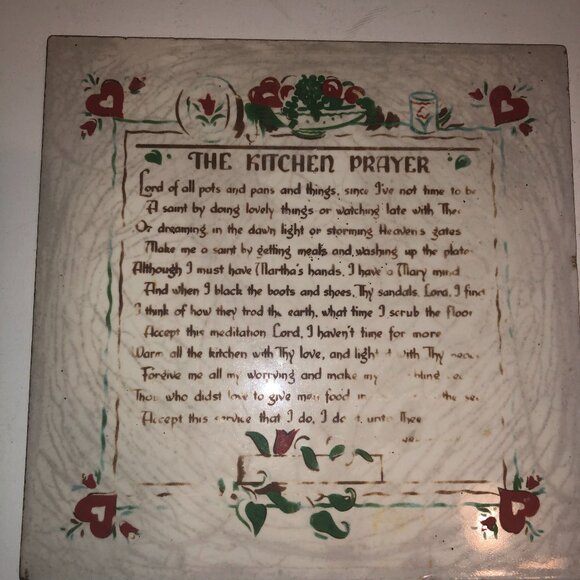 THE KITCHEN PRAYER
Lord of all pots and pans and things, since I've not time to be
A saint by doing lovely things or watching late with Thee
Or dreaming in the dawn light or storming Heaven's gates
Make me a saint by getting meals and washing up the plate
Although I must have Martha's hands, I have a Mary mind
And when I black the boots and shoes, Thy sandals, Lord, I find
I think of how they trod the earth, what time I scrub the floor
Accept this meditation Lord, I haven't time for more
Warm all the kitchen with Thy love, and light it with Thy peace
Forgive me all my worrying and make my
Thou who didst love to give men food in the sea
Accept this service that I do, I do it unto Thee